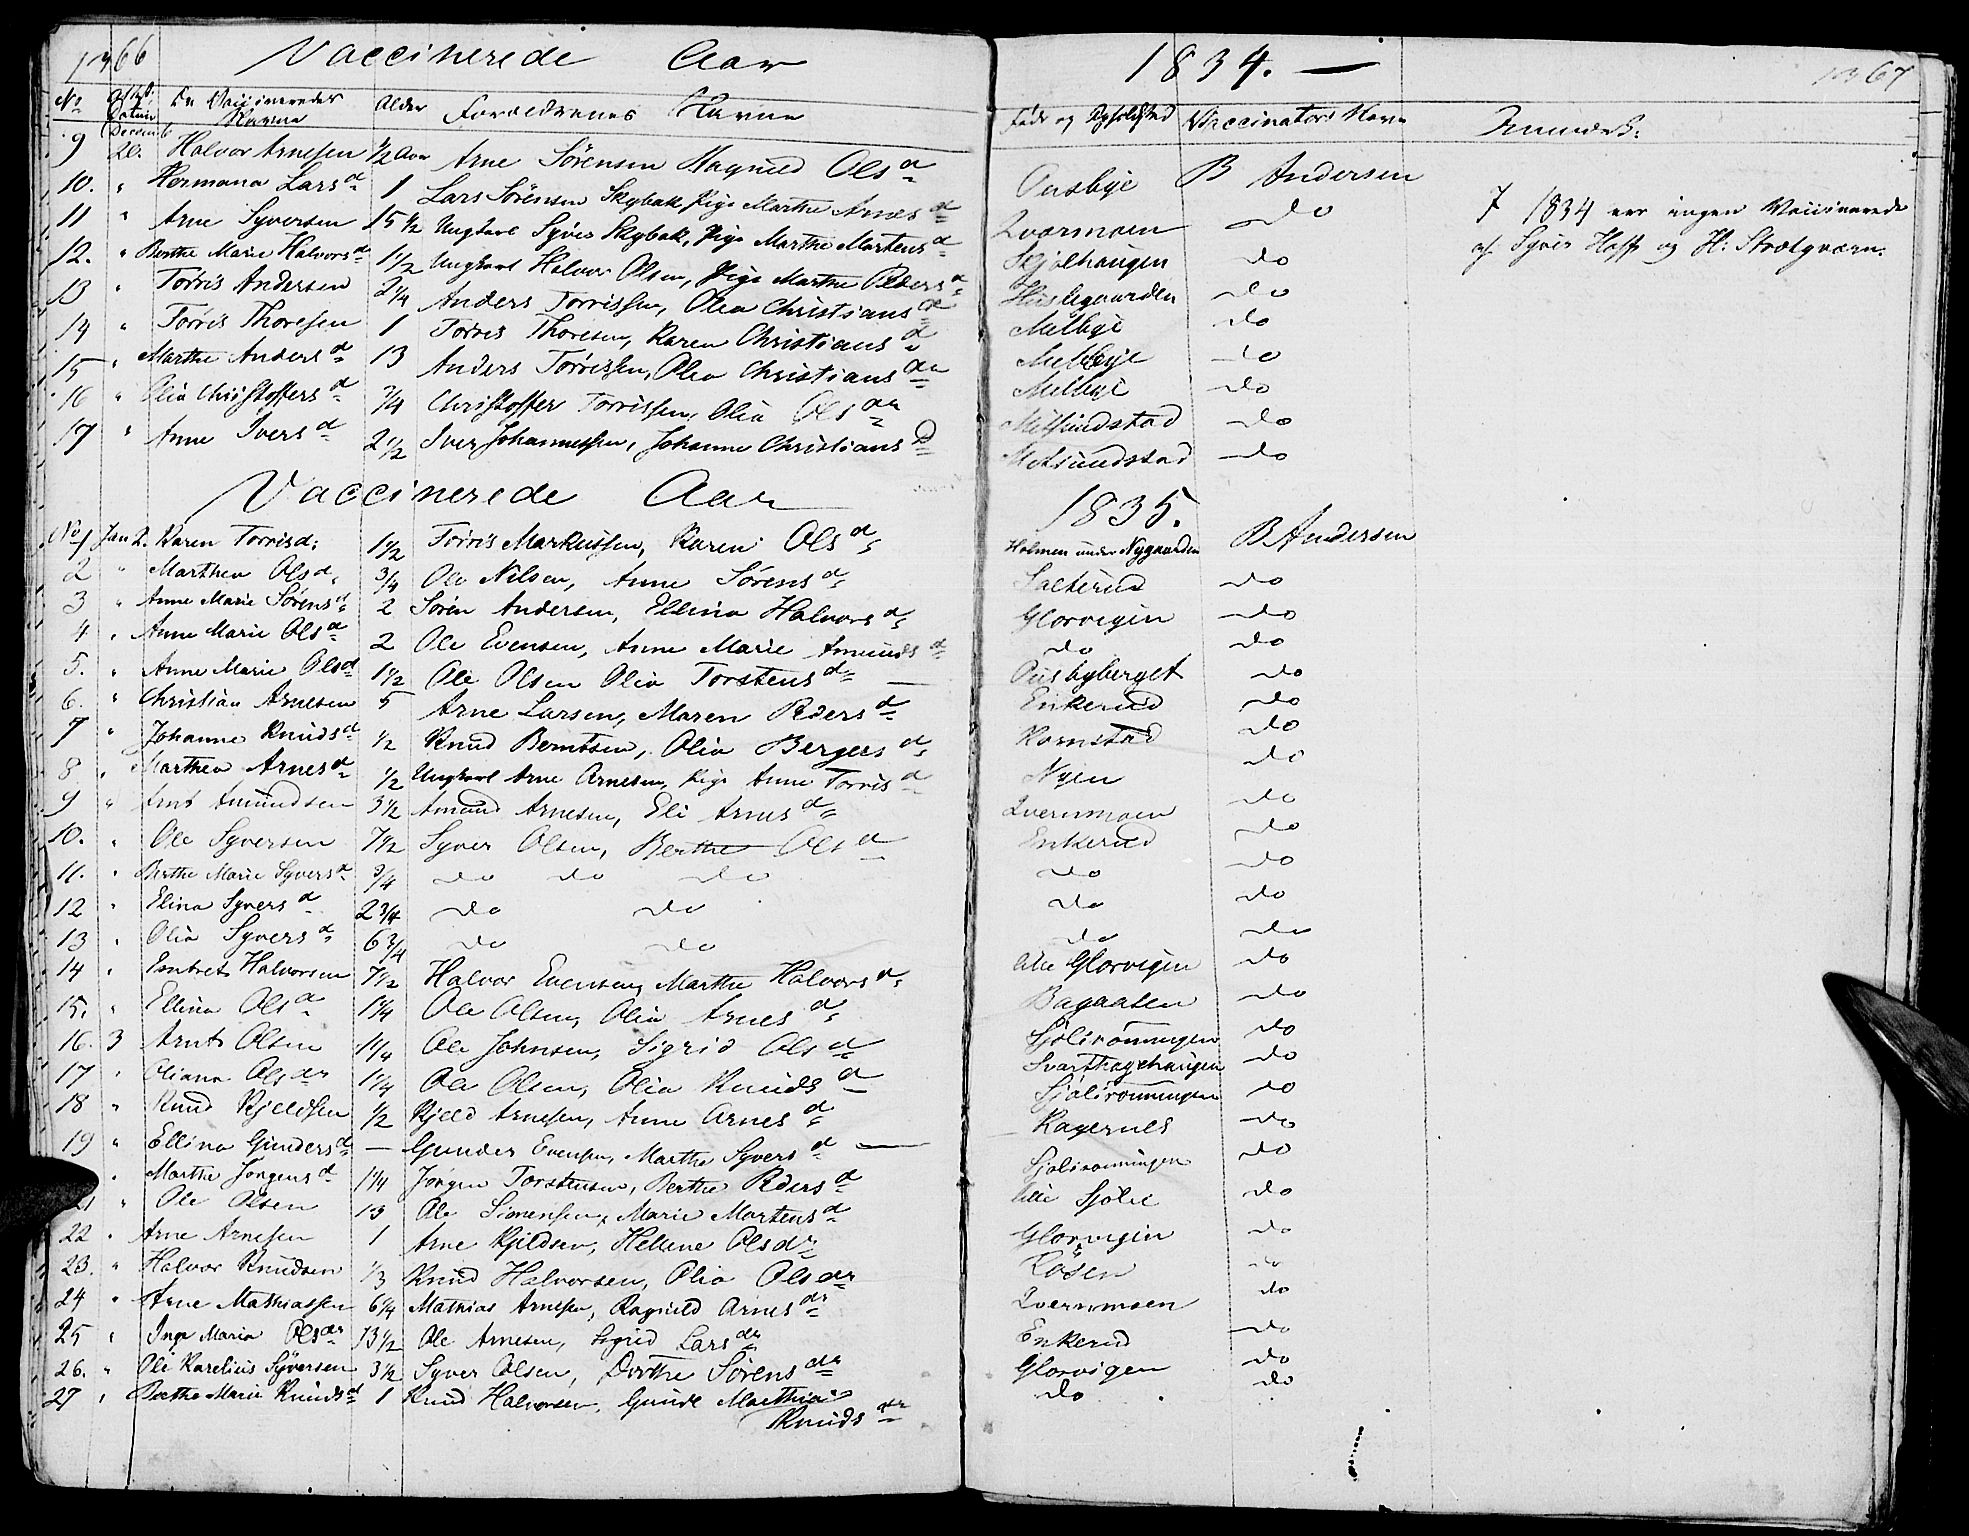 1366 Vaccinerede Aar 1834. — 1367
No Attest. Datum De Vaccineredes Navne Alder Forældrenes Navne Føde og Opholdsted Vaccinators Navn Anmærk.
9 Decemb 20. Halvor Arnesen ½ Aar Arne Sørensen Magnild Olsd Ousbye B Andersen
10. " Hermana Larsd 1 Lars Sørensen Skybak, Pige Marthe Arnesd Qvermoen do
11 " Arne Syversen 15 ½ Ungkarl Syver Skybak, Pige Marthe Martensd Skjolhaugen do
12. " Berthe Marie Halvorsd 1½ Ungkarl Halvor Olsen, Pige Marthe Pedersd do
13 " Torris Andersen 2¼ Anders Torrissen, Olea Christiansd Melbye do
14 " Torris Thoresen 1 Torris Thoresen, Karen Christiansd Melbye do
15 " Marthe Andersd 13 Anders Torrissen, Olea Christiansdr Melbye do
16 " Olia Christoffersd ¾ Christoffer Torrissen, Olia Olsdr Mitsundstad do
17 " Anne Iversd 2½ Iver Johannessen, Johanne ChristiansD Mitsundstad do
I 1834 er ingen Vaccinerede
af Syver Hoff og H: Strætqværn.
Vaccinerede Aar 1835.
No 1 Jan 2. Karen Torrisd: 1½ Torris Markussen, Karen Olsd Holmen under Nygaarden B Andersen
2 " Marthea Olsd 3/4 Ole Nilsen, Anne Sørensd Sæterud do
3 " Anne Marie Sørensd 2 Søren Andersen, Ellina Halvorsd Glorvigen do
4 " Anne Marie Olsd 2 Ole Evensen, Anne Marie Amundsd do do
5. " Anne Marie Olsd 1½ Ole Olsen Olia Torstensd — Ousbyberget do
6. " Christian Arnesen 5 Arne Larsen, Maren Pedersd Enkerud do
7 " Johanne Knudsd ½ Knud Berntsen, Olia Bergersd Kornstad do
8 " Marthea Arnesd ½ Ungkarl Arne Arnesen, Pige Anne Torrisd Nyen do
9 " Arnt Amundsen 3½ Amund Arnesen, Eli Arnesd Qvernmoen do
10. " Ole Syversen 7½ Syver Olsen, Berthe Olsd Enkerud do
11. " Berthe Marie Syversd 3/4 do do do do do
12 " Elina Syversd 2 3/4 do do do do
13 " Olia Syversd 6 3/4 do do do do
14 " Embret Halvorsen 7½ Halvor Evensen, Marthe Halvorsd lille Glorvigen do
15. " Ellina Olsd 1¼ Ole Olsen, Olia Arnesd Bagaasen do
16. 3 Arnt Olsen 1¼ Ole Johnsen, Sigrid Olsd Sjølirønningen do
17 " Oliana Olsdr 1¼ Ole Olsen, Olia Knudsd Svarthagehaugen do
18 " Knud Kjeldsen ½ Kjeld Arnesen, Anne Arnesd Sjølirønningen do
19 " Ellina Gundersd — Gunder Evensen, Marthe Syversd — Kagernes do
" Marthe Jørgensd 1¼ Jørgen Torstensen, Berthe Pedersd Sjølirønningen do
21 " Ole Olsen 13 Ole Simensen, Marie Martensd lille Sjølie do
22 " Arne Arnesen 1 Arne Kjeldsen, Hellene Olsdr Glorvigen do
23. " Halvor Knudsen 1/3 Knud Halvorsen, Olia Olsdr Røsen do
24 " Arne Mathiassen 6¼ Mathias Arnesen, Ragnild Arnesdr Qvernmoen do
25 " Inge Maria Olsdr 13½ Ole Arnesen, Sigrid Larsdr Enkerud do
26. " Ole Karelius Syversen 3½ Syver Olsen, Dorthe Sørensdr Glorvigen do
27 " Berthe Marie Knudsd 1 Knud Halvorsen, Gunild Marthea do do
Knudsdr